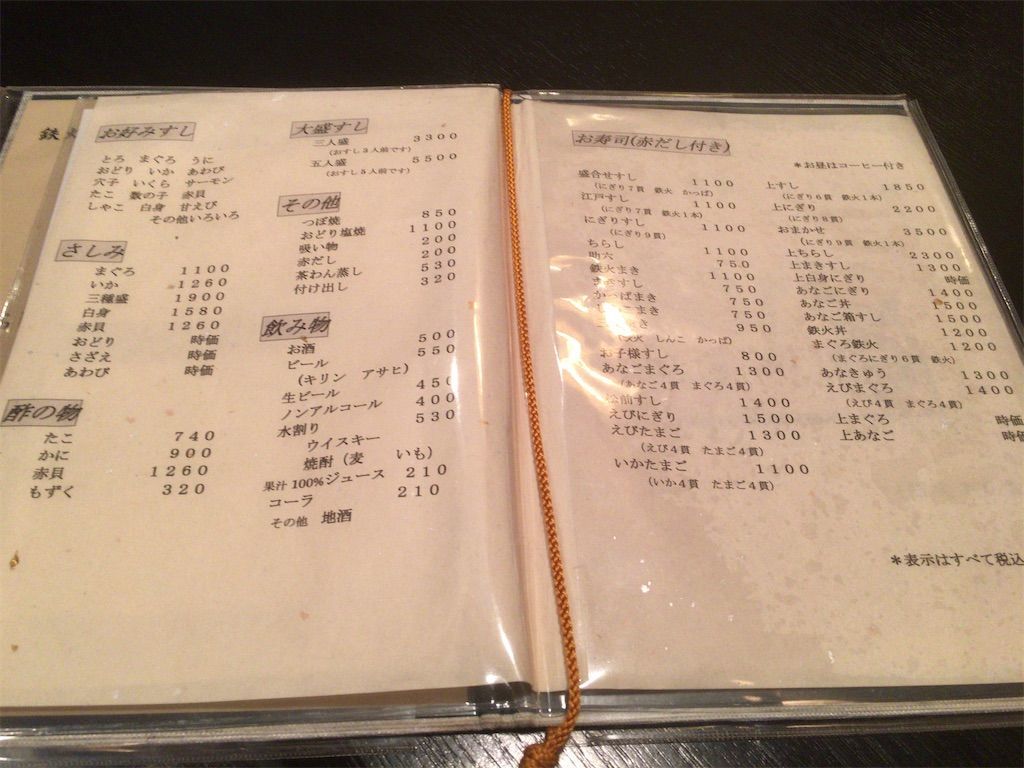 鉄
お好みすし
とろ まぐろ うに
おどり いか あわび
穴子 いくら サーモン
たこ 数の子 赤貝
しゃこ 白身 甘えび
その他いろいろ
さしみ
まぐろ 1100
いか 1260
三種盛 1900
白身 1580
赤貝 1260
おどり 時価
さざえ 時価
あわび 時価
酢の物
たこ 740
かに 900
赤貝 1260
もずく 320
大盛すし
三人盛 3300
(おすし3人前です)
五人盛 5500
(おすし5人前です)
その他
つぼ焼 850
おどり塩焼 1100
吸い物 200
赤だし 200
茶わん蒸し 530
付け出し 320
飲み物
お酒 500
ビール 550
(キリン アサヒ)
生ビール 450
ノンアルコール 400
水割り 530
ウイスキー
焼酎(麦 いも)
果汁100%ジュース 210
コーラ 210
その他 地酒
お寿司(赤だし付き)
*お昼はコーヒー付き
盛合せすし 1100
(にぎり7貫 鉄火 かっぱ)
江戸すし 1100
(にぎり7貫 鉄火1本)
にぎりすし 1100
(にぎり9貫)
ちらし 1100
助六 750
鉄火まき 1100
すし 750
かっぱまき 750
こまき 750
まき 950
しんこ かっぱ)
お子様すし 800
あなごまぐろ 1300
(あなご4貫 まぐろ4貫)
松前すし 1400
えびにぎり 1500
えびたまご 1300
(えび4貫 たまご4貫)
いかたまご 1100
(いか4貫 たまご4貫)
上すし 1850
(にぎり6貫 鉄火1本)
上にぎり 2200
(にぎり8貫)
おまかせ 3500
(にぎり9貫 鉄火1本)
上ちらし 2300
上まきすし 1300
上白身にぎり 時価
あなごにぎり 1400
あなご丼 1500
あなご箱すし 1500
鉄火丼 1200
まぐろ鉄火 1200
(まぐろにぎり6貫 鉄火)
あなきゅう 1300
えびまぐろ 1400
(えび4貫 まぐろ4貫)
上まぐろ 時価
上あなご 時価
*表示はすべて税込